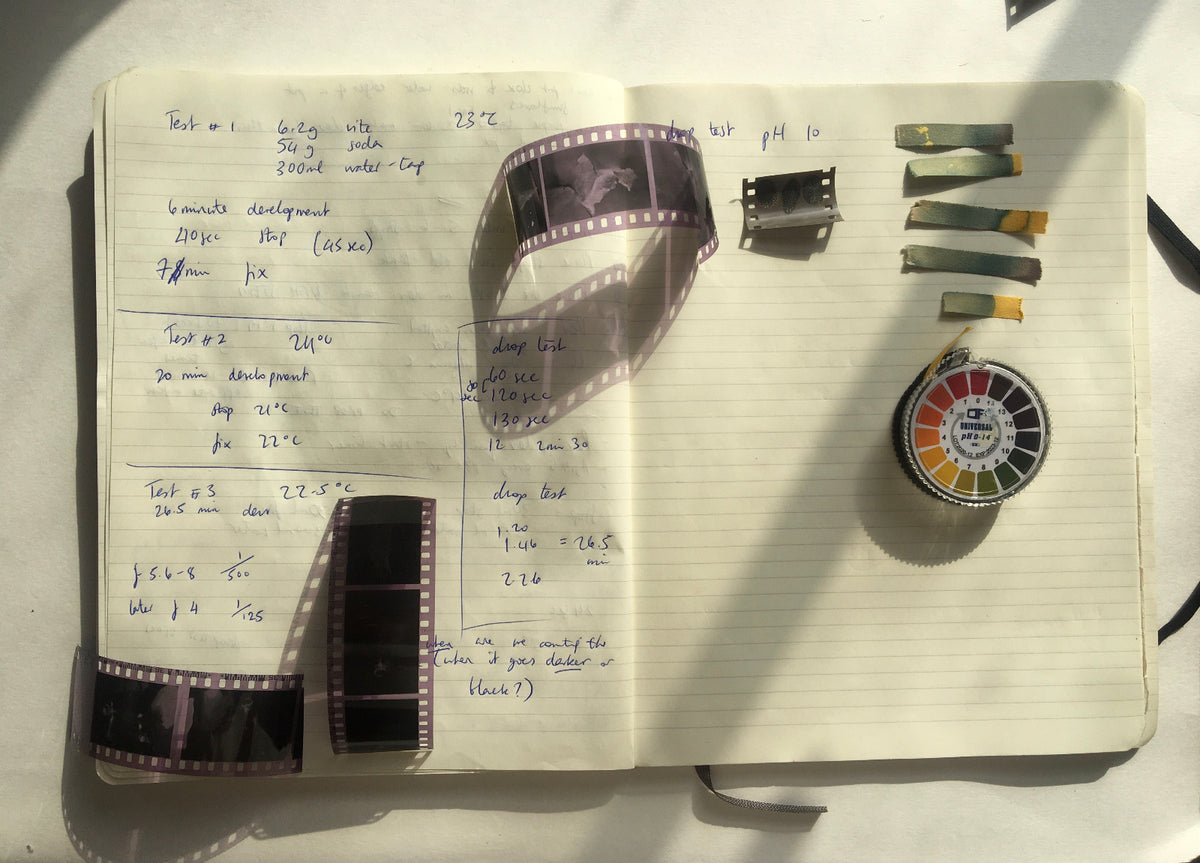 Test # 1 6.2g vite 23°C
54 g soda
300ml water - tap
6 minute development
40sec stop (45 sec)
7 min fix
Test # 2 24°C
20 min development
stop 21°C
fix 22°C
Test # 3 22.5°C
26.5 min dev
f 5.6-8 1/500
later f 4 1/125
drop test
60 sec
120 sec
130 sec
12 2min 30
drop test
1.20
1.46 = 26.5
min
2.26
when are we the
(when it goes darker or
black?)
drop test pH 10
UNIVERSAL
pH 0-14
0 1 2 3 4 5 6 7 8 9 10 11 12 13